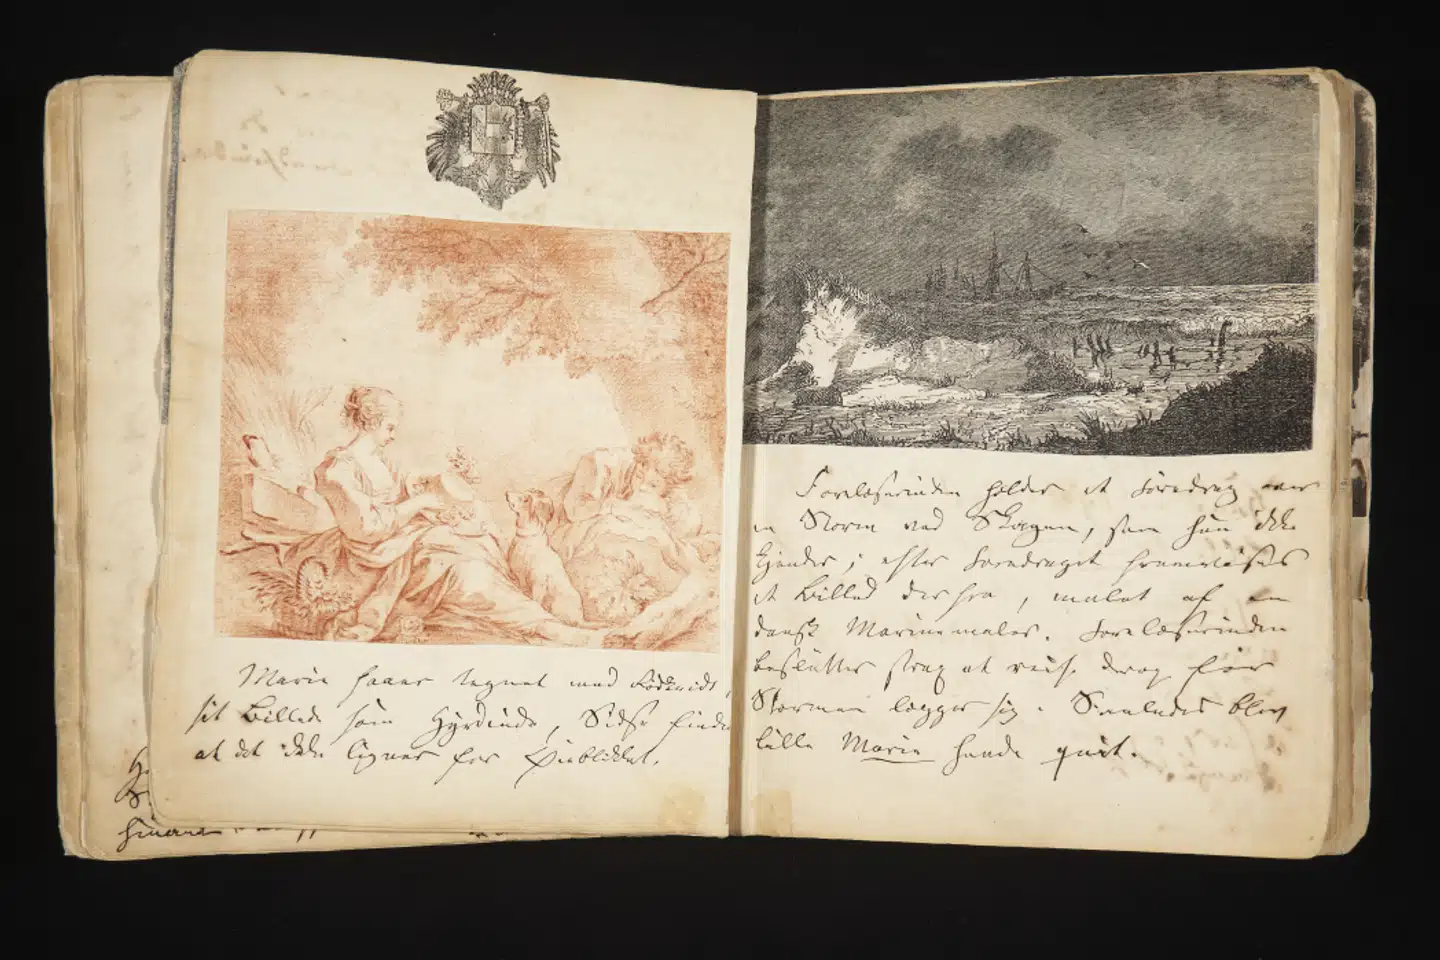 Marie faaer tegnet med Rødkridt,
sit Billede som Hyrdinde, Sidse finder
at det ikke ligner for Øieblikket.
Forelæserinden holder et Foredrag over
en Storm ved Skagen, som hun ikke
kjender; efter Foredraget fremvises
et Billed derfra, malet af en
dansk Marinemaler. Forelæserinden
beslutter strax at reise derop før
Stormen lægger sig. Saaledes blev
lille Marie hende qvit.